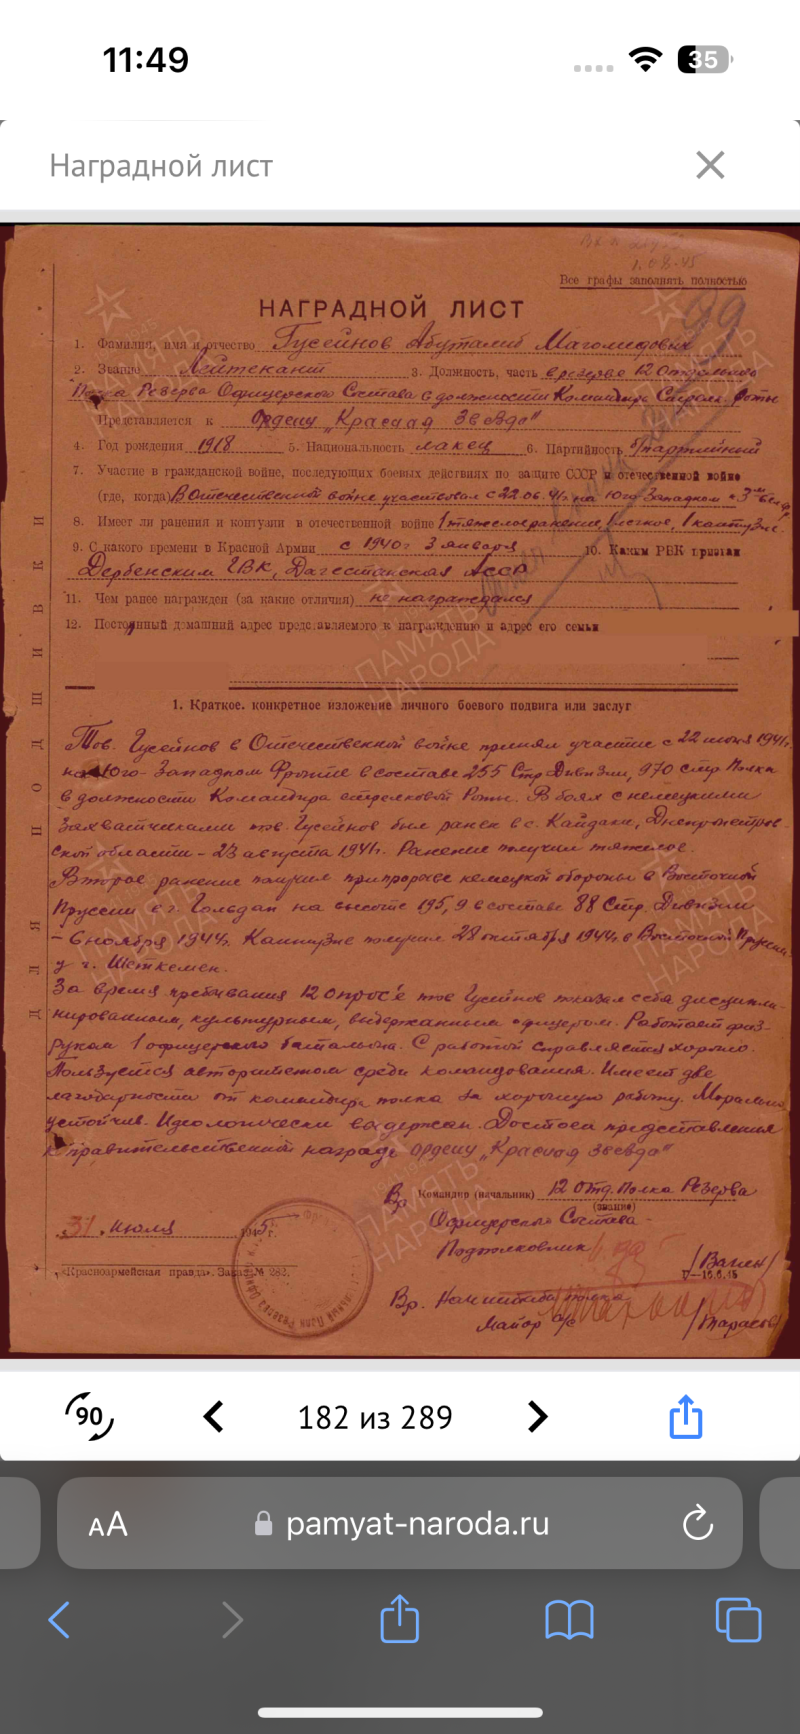 11:49
35
Наградной лист
1.08.45
Все графы заполнять полностью
99
НАГРАДНОЙ ЛИСТ
1. Фамилия, имя и отчество Гусейнов Абуталиб Магомедович
2. Звание Лейтенант 3. Должность, часть в резерве 12 Отдельного
Полка Резерва Офицерского Состава в должности Командира Стрелк. Роты
Представляется к Ордену „Красная Звезда"
4. Год рождения 1918 5. Национальность лакец 6. Партийность б/партийный
7. Участие в гражданской войне, последующих боевых действиях по защите СССР и отечественной войне
(где, когда) В Отечественной войне участвовал с 22.06.41г. на Юго-Западном и 3м Бел.фр
8. Имеет ли ранения и контузии в отечественной войне 1 тяжелое ранение, 1 легкое, 1 контузие
9. С какого времени в Красной Армии с 1940г 3 января 10. Каким РВК призван
Дербенским ГВК, Дагестанская АССР
11. Чем ранее награжден (за какие отличия) не награждался
12. Постоянный домашний адрес представляемого к награждению и адрес его семьи
ДЛЯ ПОДШИВКИ
1. Краткое, конкретное изложение личного боевого подвига или заслуг
Тов. Гусейнов в Отечественной войне принял участие с 22 июня 1941г.
на Юго-Западном Фронте в составе 255 Стр. Дивизии, 970 стр. Полка
в должности Командира стрелковой Роты. В боях с немецкими
захватчиками тов. Гусейнов был ранен в с. Кайдаки, Днепропетров-
ской области – 23 августа 1941г. Ранение получил тяжелое.
Второе ранение получил при прорыве немецкой обороны в Восточной
Пруссии в г. Гольдап на высоте 195,9 в составе 88 Стр. Дивизии
– 6 ноября 1944г. Контузие получил 28 октября 1944г. в Восточной Пруссии
у г.
За время пребывания 12 опрос'е тов Гусейнов показал себя дисципли-
нированным, культурным, выдержанным офицером. Работает физ-
руком 1 офицерского батальона. С работой справляется хорошо.
Пользуется авторитетом среди командования. Имеет две
благодарности от командира полка за хорошую работу. Морально
устойчив. Идеологически выдержан. Достоен представления
к правительственной награде ордену „Красная Звезда"
Вр. Командир (начальник) 12 Отд. Полка Резерва
(звание)
Офицерского Состава –
31 Июля 1945 г.
Подполковник /Ванен/
„Красноармейская правда". Заказ № 282.
V—16.6.45
Вр. Начштаба полка
Майор а/с /Тарасов/
ПАМЯТЬ
НАРОДА
182 из 289
90
АА
pamyat-naroda.ru